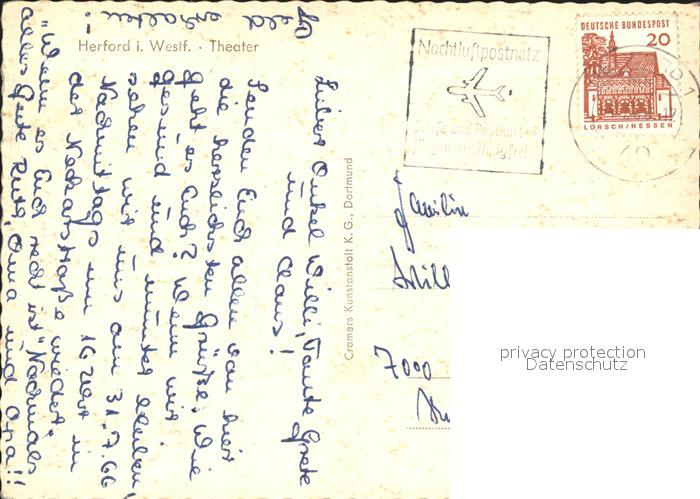 Herford i. Westf. · Theater
Lieber Onkel Willi, Tante Grete
und Claus!
Senden Euch allen von hier
die herzlichsten Grüße. Wie
geht es Euch? Wenn wir
gesund und munter bleiben,
sehen wir uns am 31.7.66
Nachmittags um 16 Uhr in
der Neckarstraße wieder.
"Wenn es Euch recht ist" Nochmals
alles Gute Ruth, Oma und Opa!!
Geld erhalten!
Cramers Kunstanstalt K. G., Dortmund
Nachtluftpostnetz
Briefe und Postkarten
fliegen zuschlagfrei
DEUTSCHE BUNDESPOST
20
LORSCH/HESSEN
Familie
Will
7000
privacy protection
Datenschutz